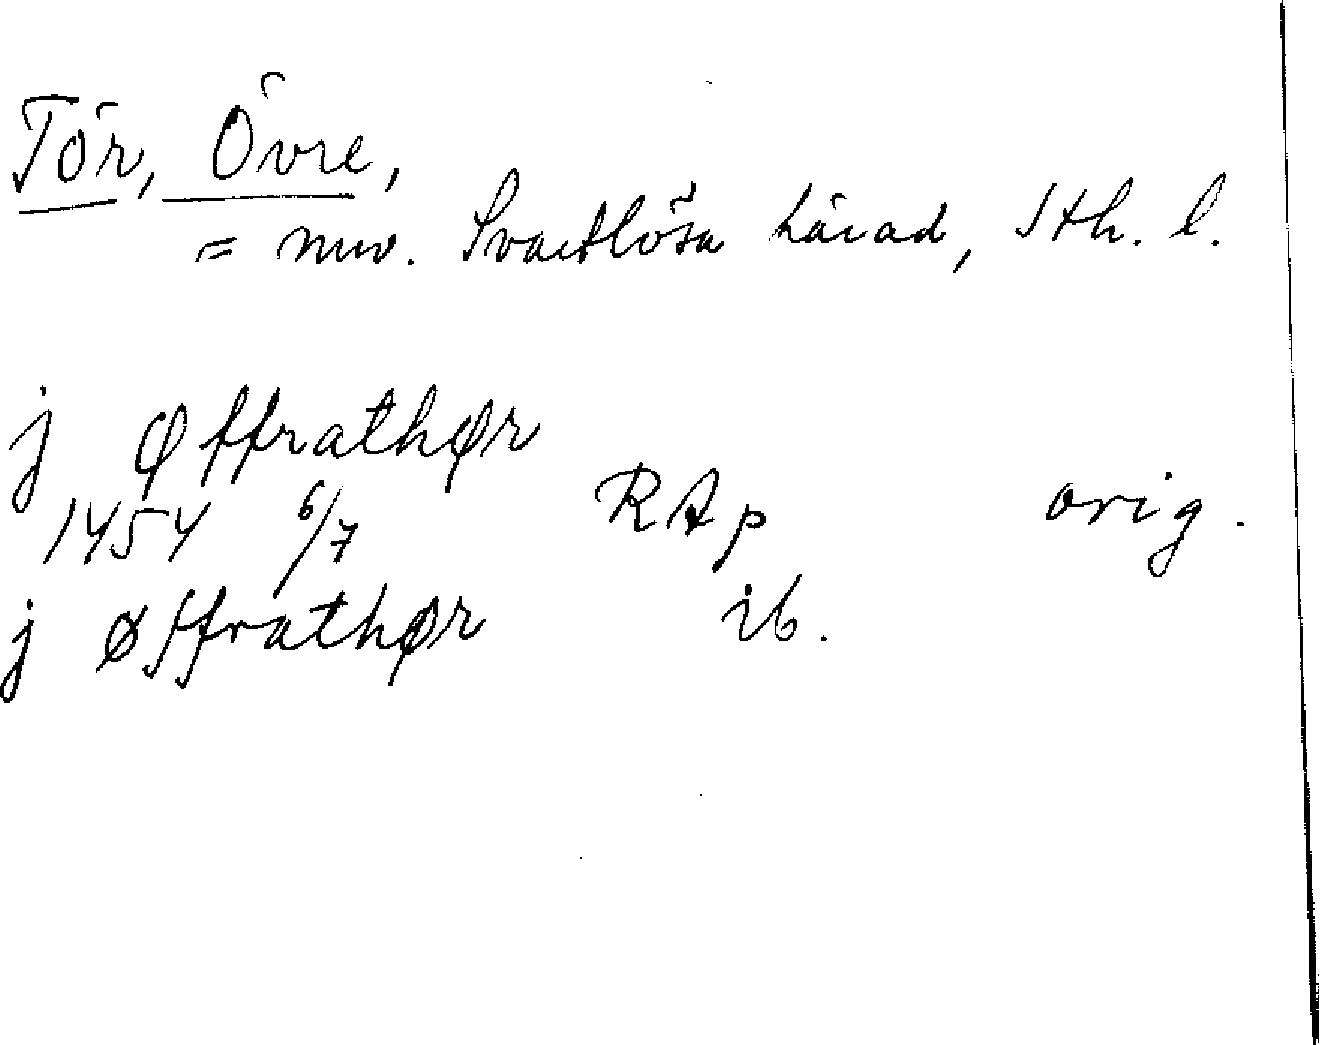 Tör, Övre,
= nuv. Svartlösa härad, Sth. l.
j Øffrathør
1454 6/7 RAp orig.
j øffrathør ib.